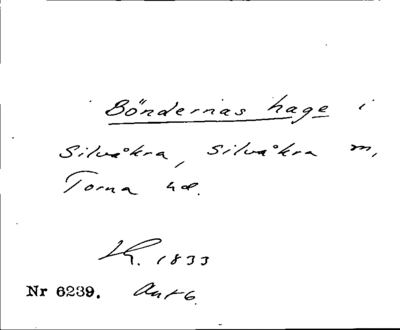 Böndernas hage i
Silvåkra, Silvåkra m,
Torna hd.
1833
Nr 6239. Avt 6.